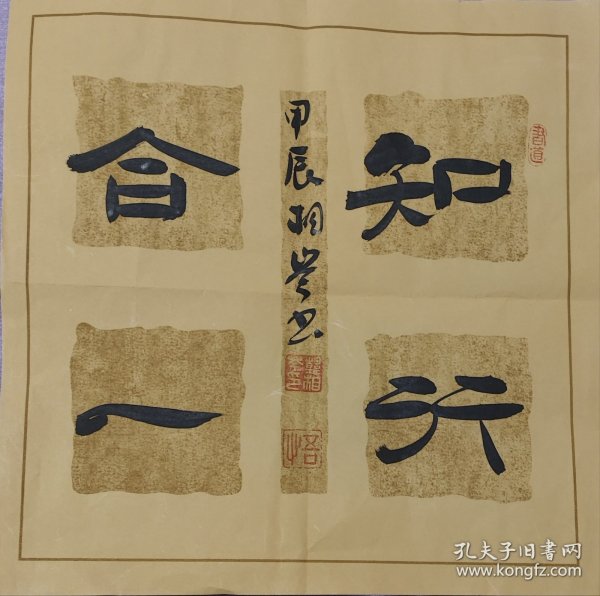 知行
合一
甲辰相岑书
书道
孔夫子旧书网
www.kongfz.com